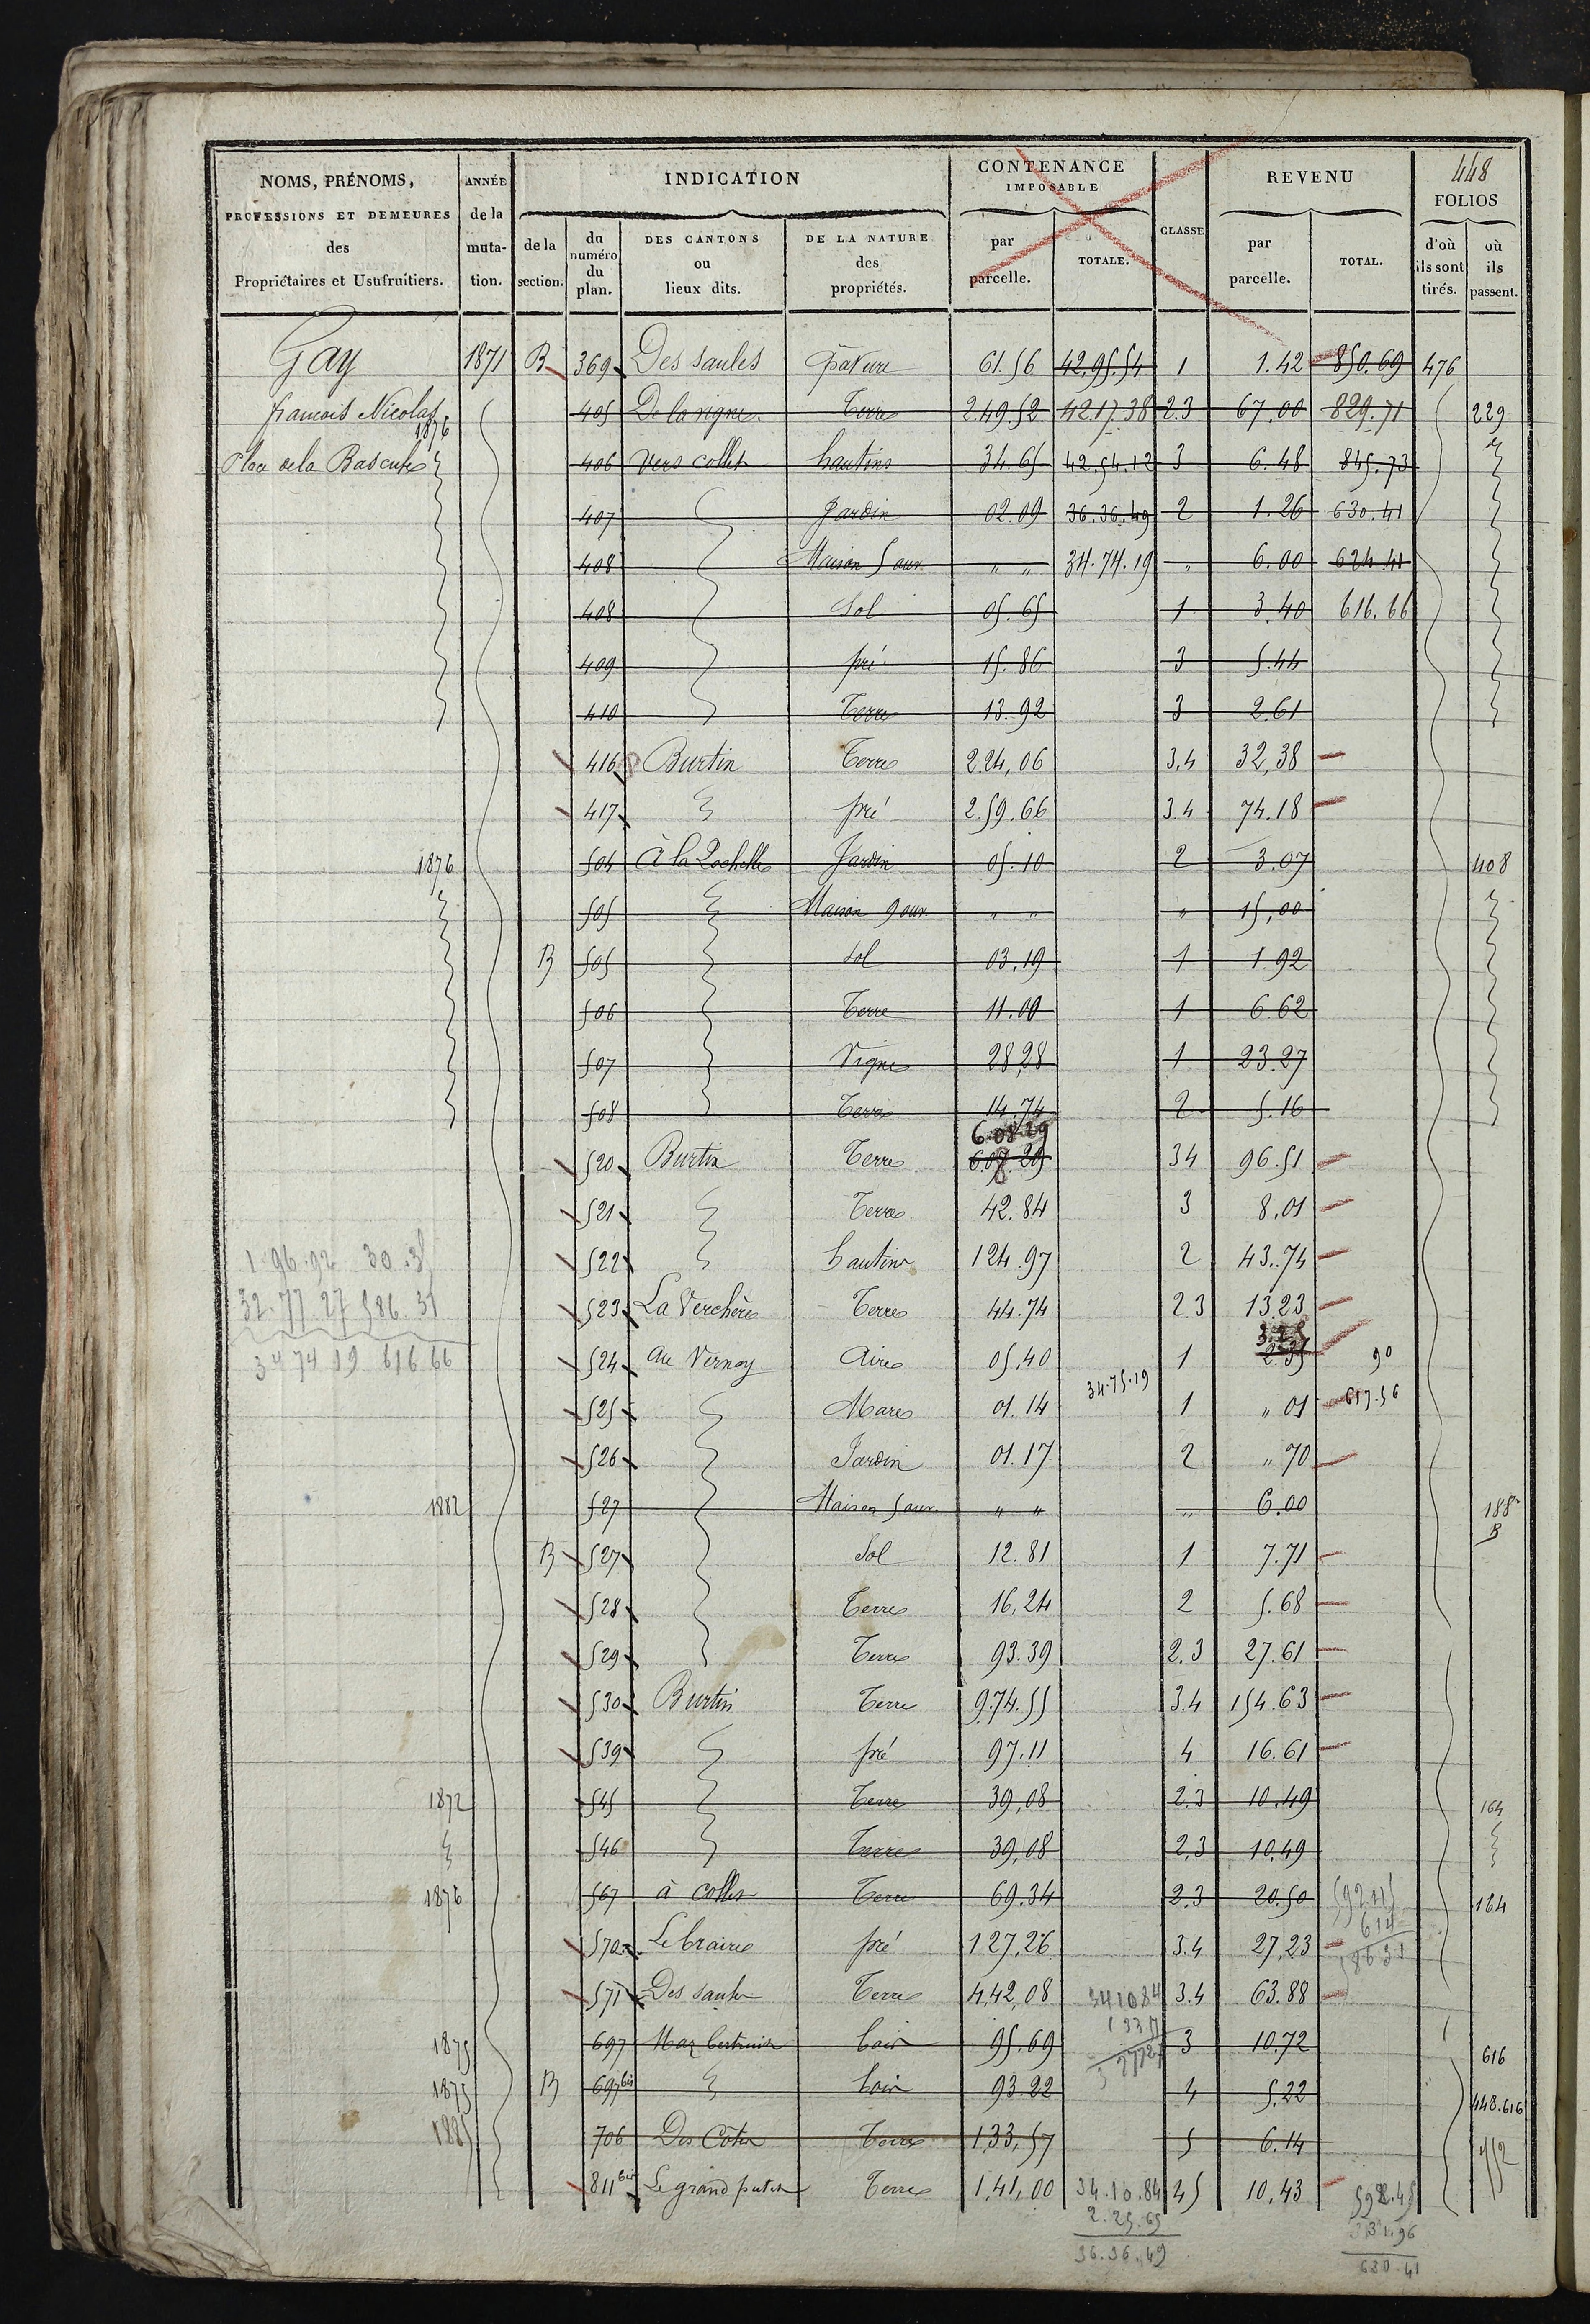 448
NOMS, PRÉNOMS, PROFESSIONS ET DEMEURES des Propriétaires et Usufruitiers. ANNÉE de la mutation. INDICATION de la section. du numéro du plan. DES CANTONS ou lieux dits. DE LA NATURE des propriétés. CONTENANCE IMPOSABLE par parcelle. TOTALE. CLASSE REVENU par parcelle. TOTAL. FOLIOS d'où ils sont tirés. où ils passent.
Gay 1871 B 369 Des saules pature 61.56 42.95.54 1 1.42 850.69 476
francois Nicolas 405 De la vigne Terre 2.49.52 42.17.38 2.3 67.00 829.71 229
1876
place de la Bascule 406 vers collet hautins 34.65 42.54.12 3 6.48 845.73
407 Jardin 02.09 36.36.49 2 1.26 630.41
408 Maison 5 ouv " " 34.74.19 " 6.00 624.41
408 Sol 05.65 1 3.40 616.66
409 pré 15.86 3 5.44
410 Terre 13.92 3 2.61
416 Burtin Terre 2.24,06 3.4 32,38
417 pré 2.59.66 3.4 74.18
1876 504 à la Rochelle Jardin 05.10 2 3.07 408
505 Maison 9 ouv " " " 15,00
B 505 Sol 03.19 1 1.92
506 Terre 11.00 1 6.62
507 Vigne 28,28 1 23.27
508 Terre 14.74 2 5.16
6.08.29
520 Burtin Terre 6.07.29 34 96.51
521 Terre 42.84 3 8,01
1.96.92 30.35 522 hautins 124.97 2 43.74
32.77.27 586.31 523 La Verchère Terre 44.74 2.3 13.23
3.25
34 74 19 616 66 524 au Vernay Aire 05,40 1 2.35 90
34.75.19
525 Mare 01.14 1 " 01 617.56
526 Jardin 01.17 2 " 70
1882 527 Maison 5 ouv. " " " 6.00 188 B
B 527 Sol 12.81 1 7.71
528 Terre 16,24 2 5.68
529 Terre 93.39 2.3 27.61
530 Burtin Terre 9.74.55 3.4 154.63
539 pré 97.11 4 16.61
1872 545 Terre 39,08 2.3 10.49 164
546 Terre 39,08 2,3 10.49
1876 567 à collet Terre 69.34 2.3 20.50 164
614
570 pré 127,26 3.4 27,23 586 31
571 Des saules Terre 4,42,08 341084 3.4 63.88
1875 697 bois 95.69 3 10.72 616
1875 B 697 bis bois 93.22 4 5.22 448.616
1885 706 Des Côtes Terre 1,33,57 5 6.14
811 bis Le grand Terre 1,41,00 34.10.84 45 10,43 592.45
2.25.65
36.36.49 630.41